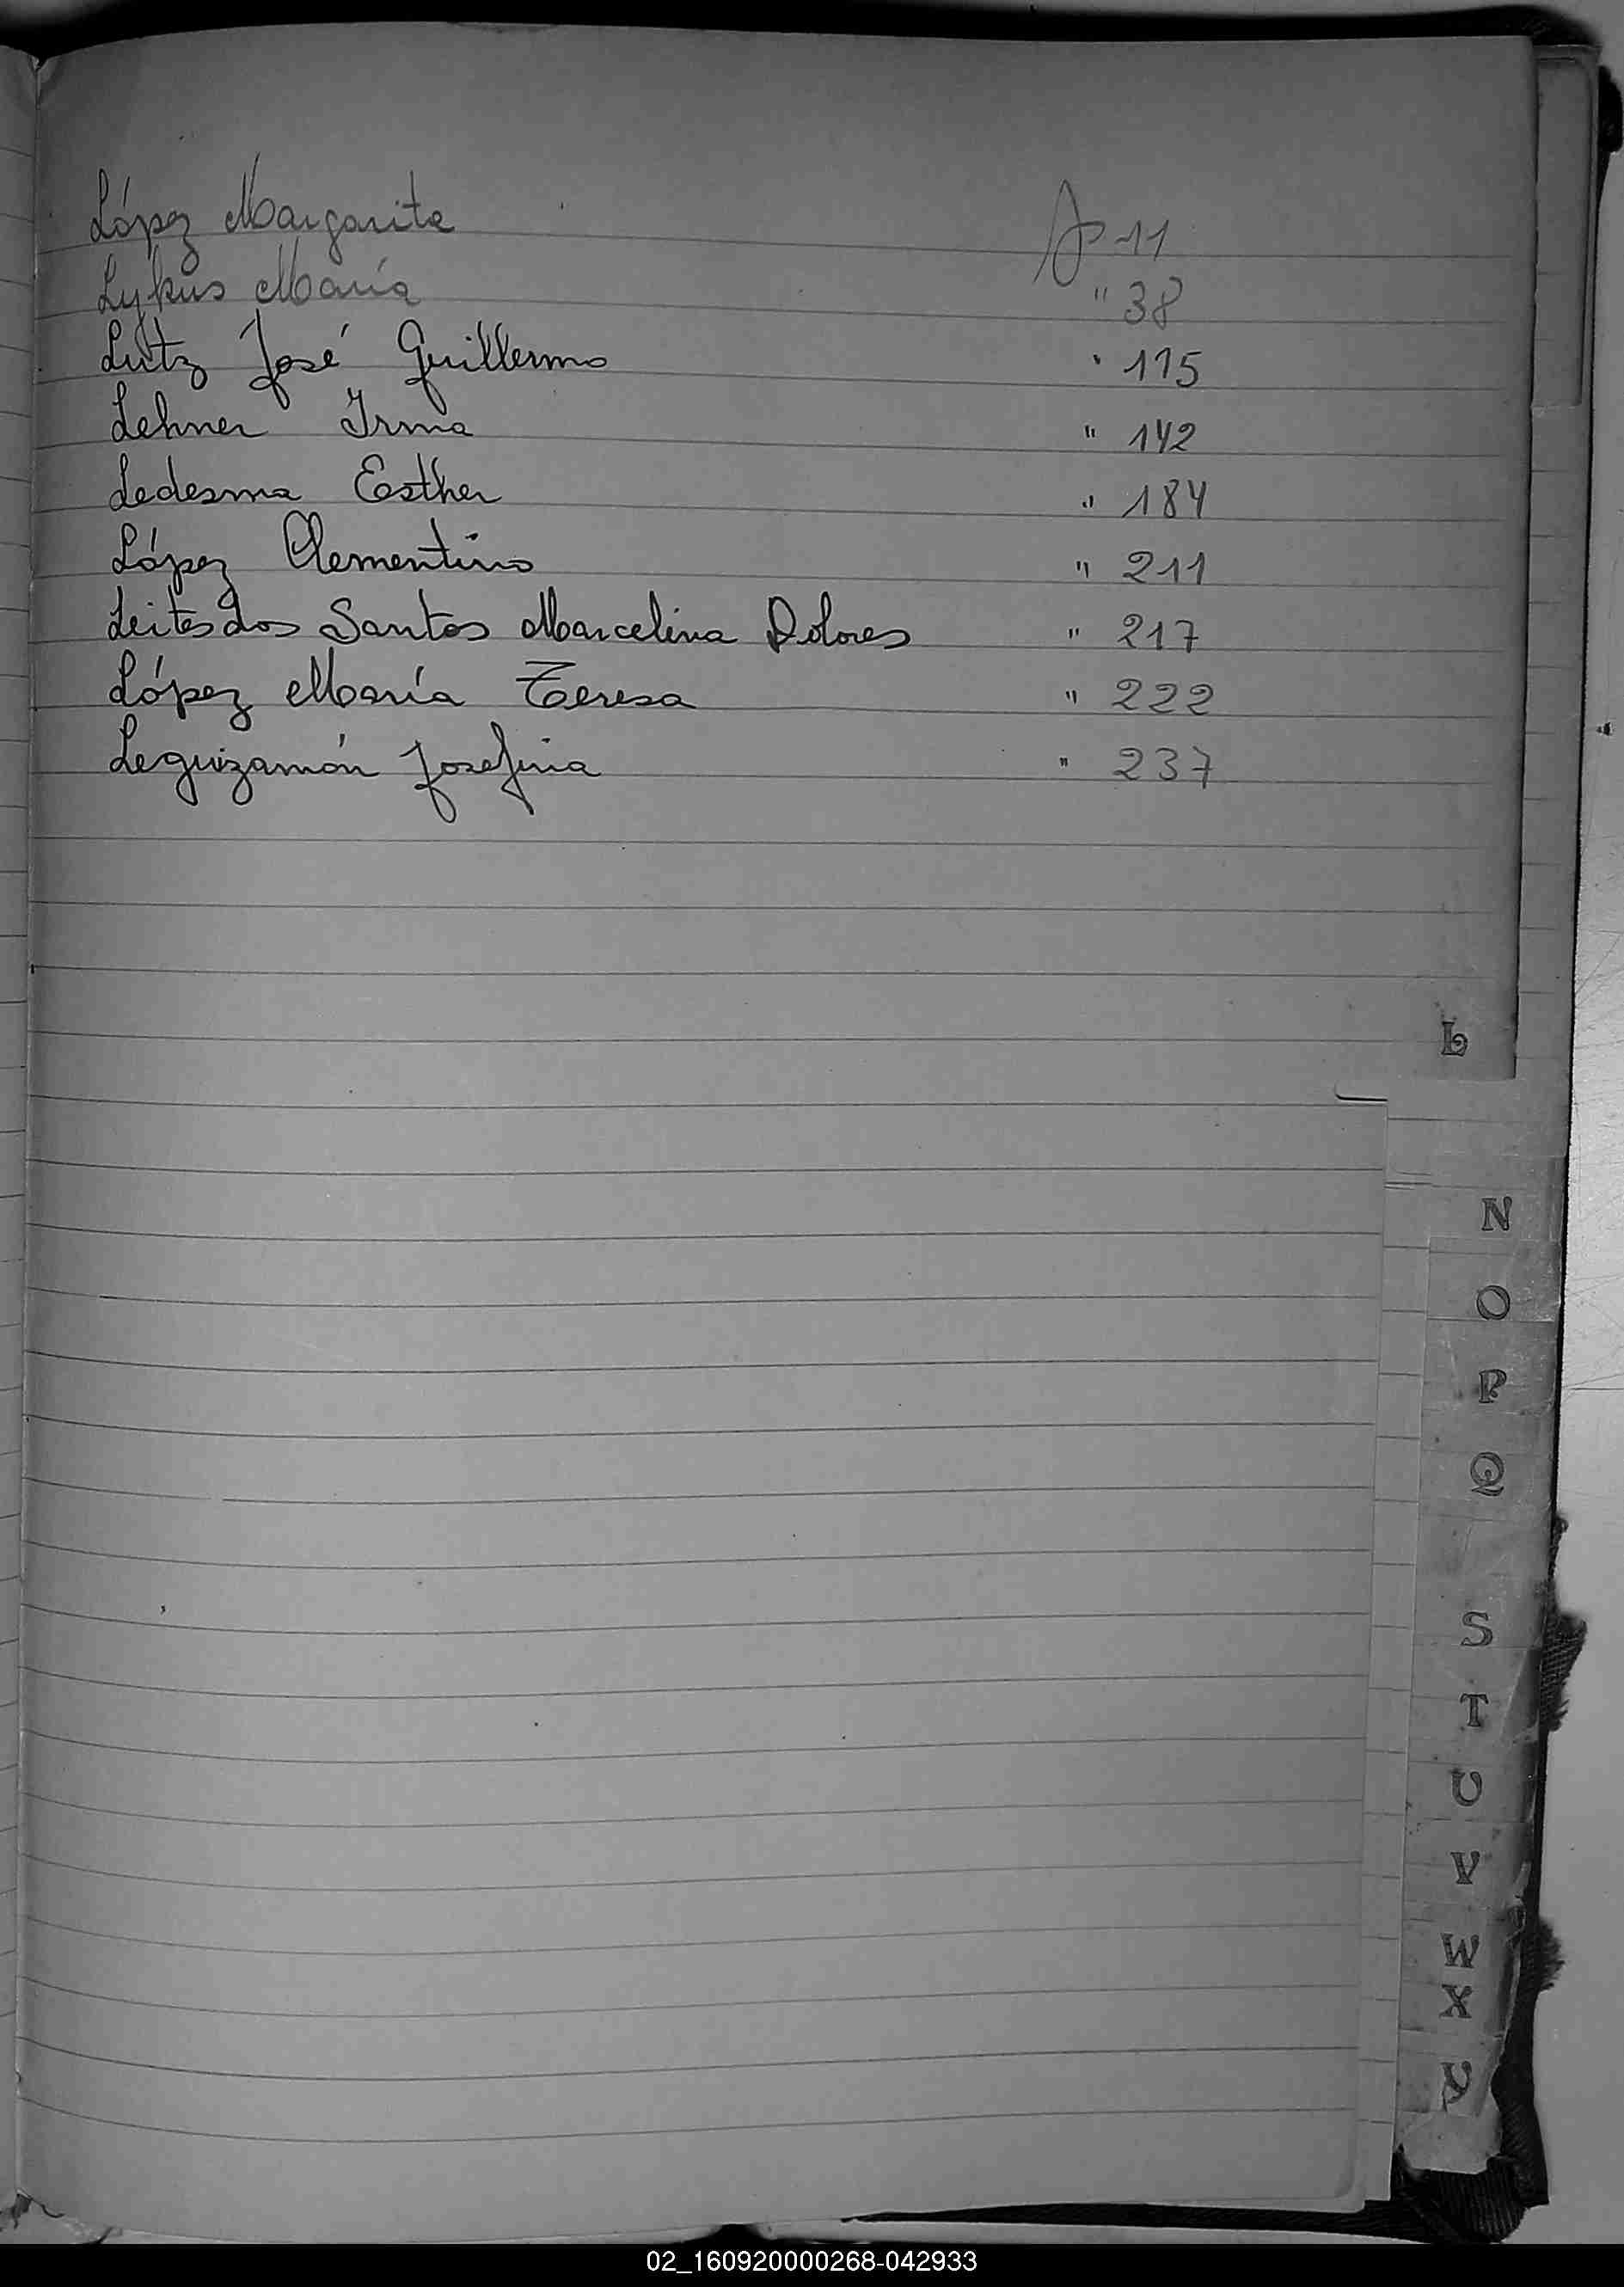 López Margarita Fº 11
Lykus María " 38
Lutz José Guillermo " 115
Lehner Irma " 142
Ledesma Esther " 184
López Clementino " 211
Leites dos Santos Marcelina Dolores " 217
López María Teresa " 222
Leguizamón Josefina " 237
L
N
O
P
Q
S
T
U
V
W
X
Y
02_160920000268-042933